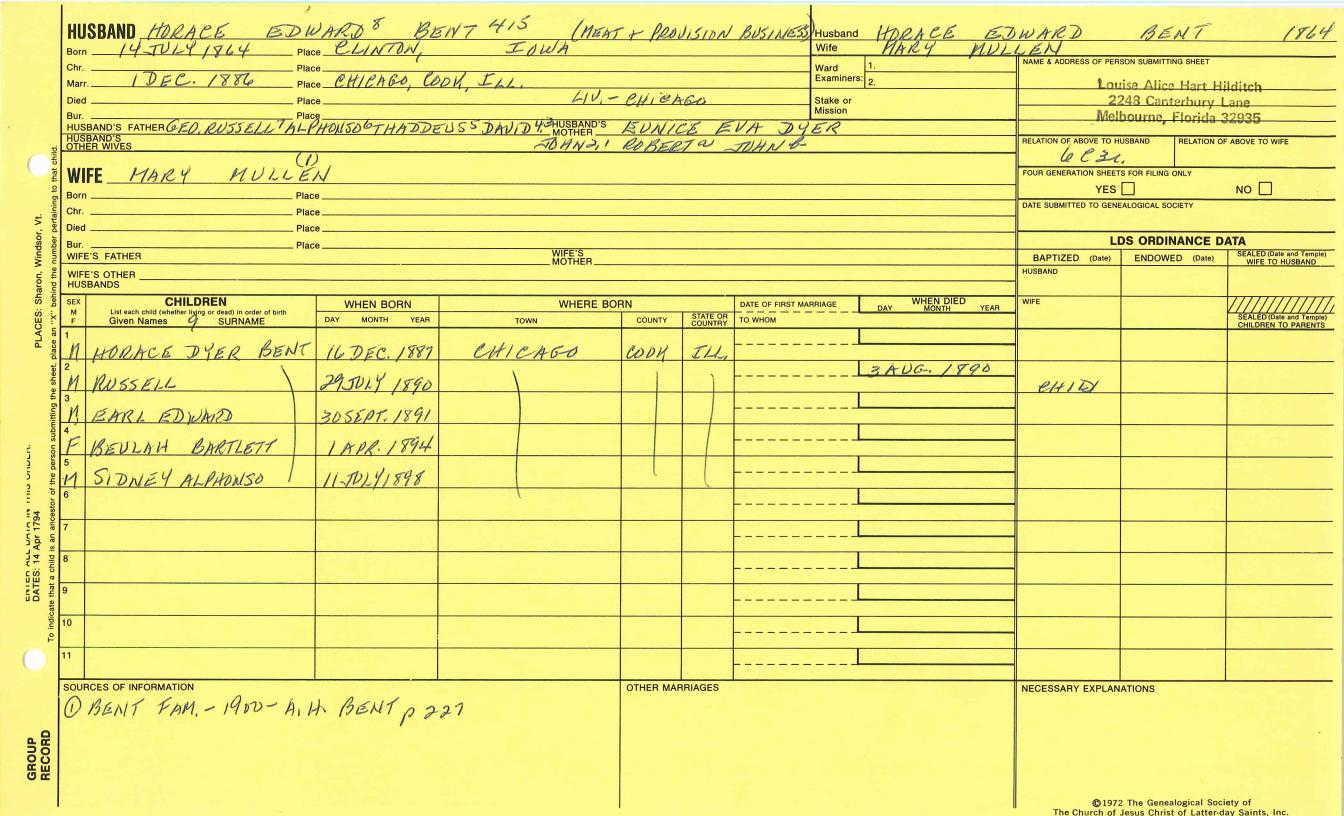 HUSBAND HORACE EDWARD 8 BENT 415 (MEAT + PROVISION BUSINESS)
Born 14 JULY 1864 Place CLINTON, IOWA
Chr. Place
Marr. 1 DEC. 1886 Place CHICAGO, COOK, ILL.
Died Place LIV. - CHICAGO
Bur. Place
HUSBAND'S FATHER GEO. RUSSELL 7 ALPHONSO 6 THADDEUS 5 DAVID 4,3 HUSBAND'S MOTHER EUNICE EVA DYER
HUSBAND'S OTHER WIVES JOHN 2,1 ROBERT a JOHN b
WIFE MARY MULLEN (1)
Born Place
Chr. Place
Died Place
Bur. Place
WIFE'S FATHER WIFE'S MOTHER
WIFE'S OTHER HUSBANDS
Husband HORACE EDWARD BENT 1864
Wife MARY MULLEN
Ward Examiners: 1.
2.
Stake or Mission
NAME & ADDRESS OF PERSON SUBMITTING SHEET
Louise Alice Hart Hilditch
2248 Canterbury Lane
Melbourne, Florida 32935
RELATION OF ABOVE TO HUSBAND RELATION OF ABOVE TO WIFE
6 C 3r.
FOUR GENERATION SHEETS FOR FILING ONLY
YES NO
DATE SUBMITTED TO GENEALOGICAL SOCIETY
LDS ORDINANCE DATA
BAPTIZED (Date) ENDOWED (Date) SEALED (Date and Temple) WIFE TO HUSBAND
HUSBAND
WIFE
SEALED (Date and Temple) CHILDREN TO PARENTS
SEX M F CHILDREN WHEN BORN WHERE BORN DATE OF FIRST MARRIAGE WHEN DIED
List each child (whether living or dead) in order of birth
Given Names 9 SURNAME DAY MONTH YEAR TOWN COUNTY STATE OR COUNTRY TO WHOM DAY MONTH YEAR
1 M HORACE DYER BENT 16 DEC. 1887 CHICAGO COOK ILL.
2 M RUSSELL 29 JULY 1890 3 AUG. 1890 CHILD
3 M EARL EDWARD 30 SEPT. 1891
4 F BEULAH BARTLETT 1 APR. 1894
5 M SIDNEY ALPHONSO 11 JULY 1898
6
7
8
9
10
11
SOURCES OF INFORMATION OTHER MARRIAGES NECESSARY EXPLANATIONS
① BENT FAM. - 1900 - A.H. BENT p 227
©1972 The Genealogical Society of
The Church of Jesus Christ of Latter-day Saints, Inc.
PLACES: Sharon, Windsor, Vt.
DATES: 14 Apr 1794
To indicate that a child is an ancestor of the person submitting the sheet, place an "X" behind the number pertaining to that child.
GROUP RECORD